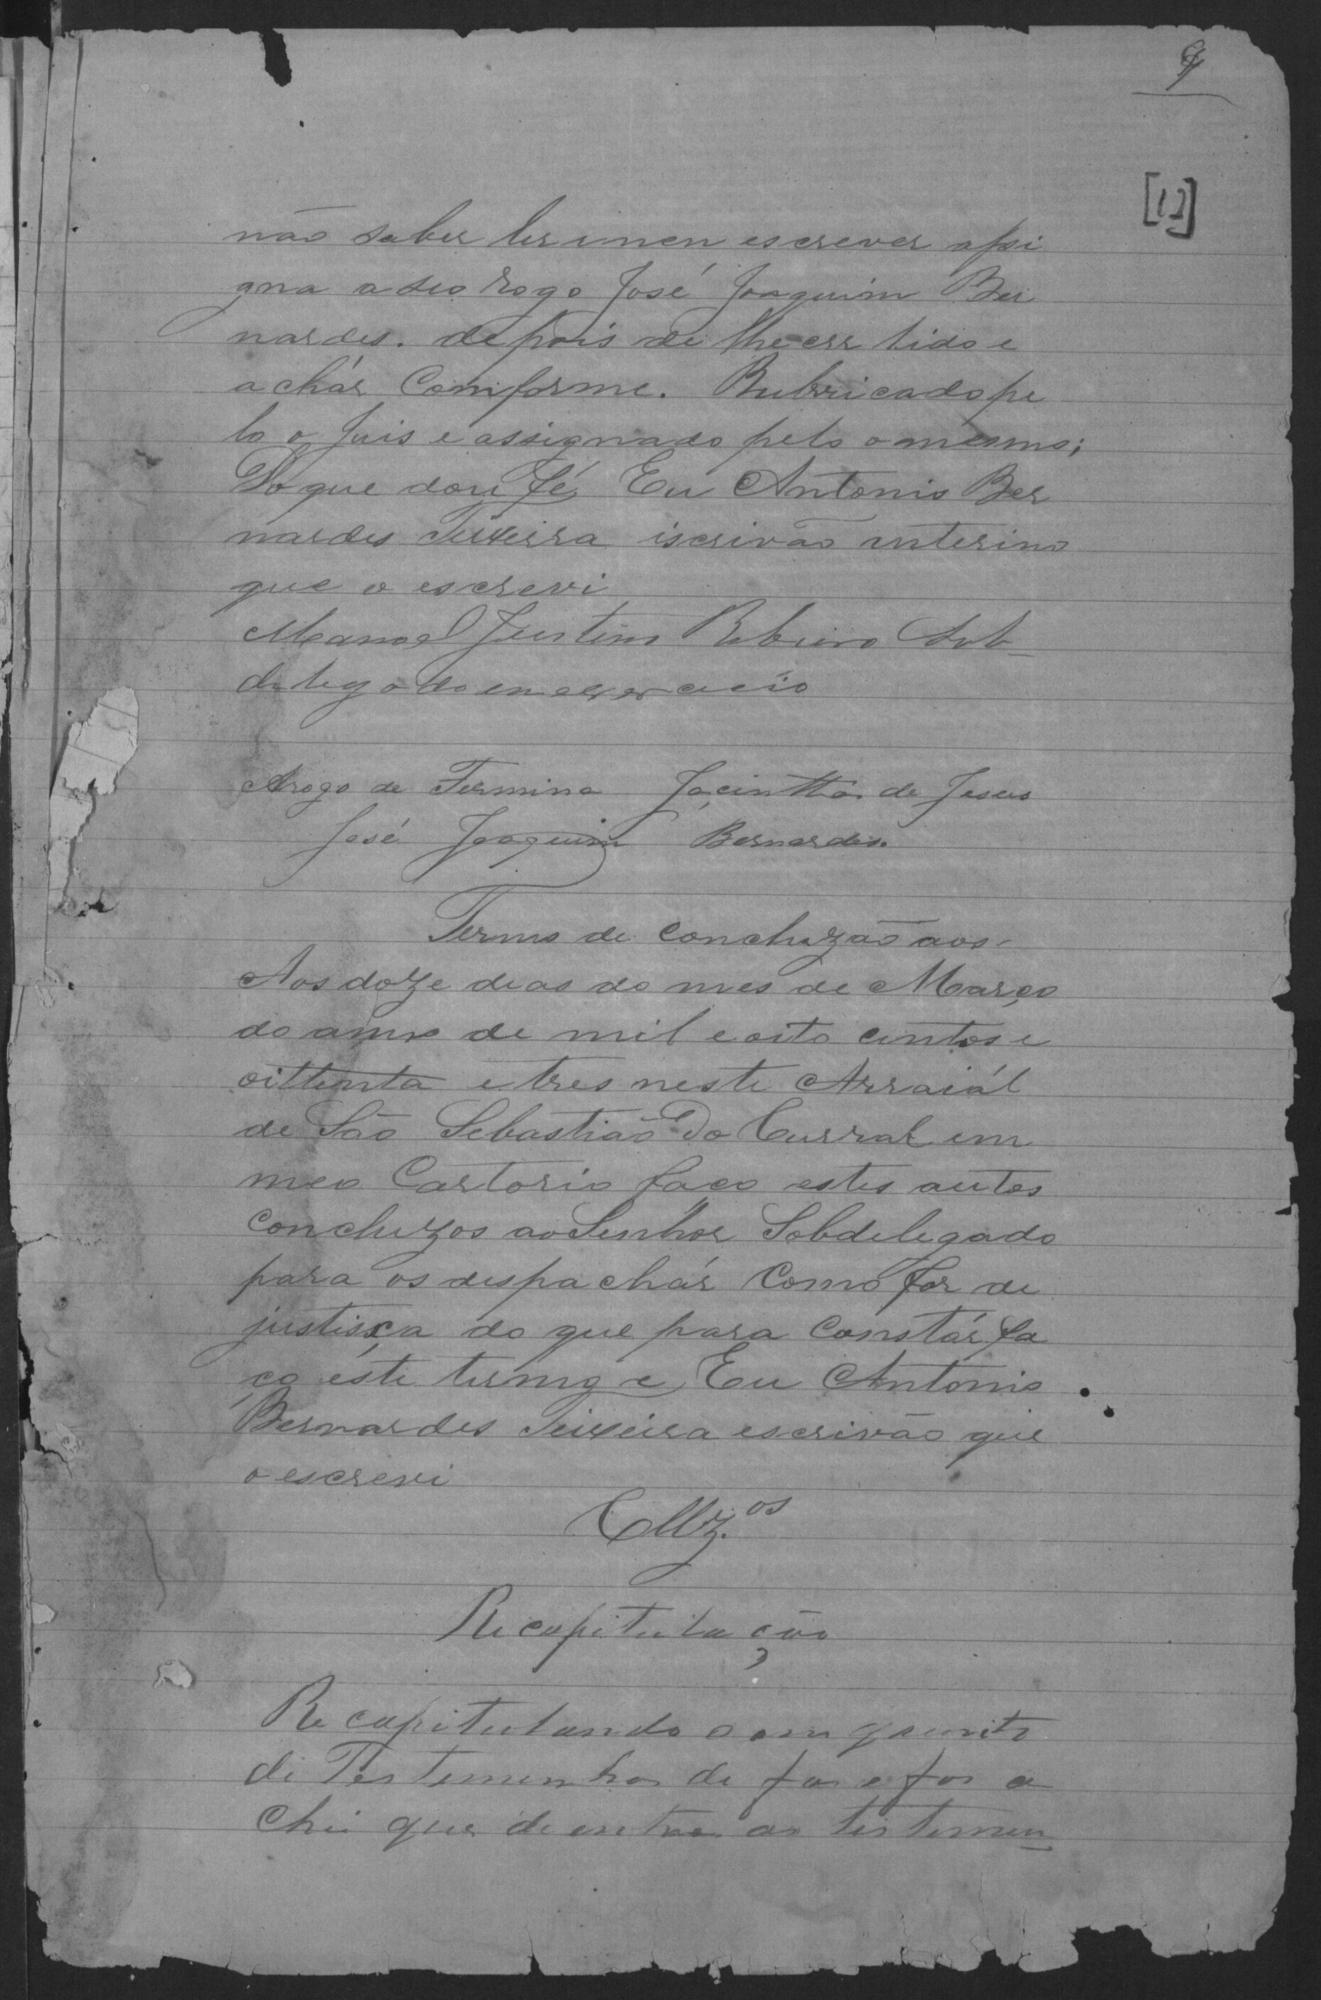 9
[12]
não saber ler e nem escrever assi
gna a seo rogo José Joaquim Ber
nardes. depois de lhe ser lido e
achár Comforme. Rubricado pe
lo o Juis e assignado pelo o mesmo;
Do que dou fé, Eu Antonio Ber
nardes Teixeira iscrivão interino
que o escrevi
Manoel Justino Ribeiro Sub
delegado em exercicio
Arogo de Fermina Jacintha de Jesus
José Joaquim Bernardes.
Termo de concluzão aos
Aos doze dias do mes de Março
do anno de mil e oito centos e
oittenta e tres neste Arraiál
de São Sebastião Do Curral em
meo Cartorio faço estes autos
concluzos ao Senhor Sobdelegado
para os despachár Como for de
justissa do que para Constár fa
ço éste termo e Eu Antonio
Bernardes Teixeira escrivão que
o escrevi
Cllz.os
Recapitulação
Recapitulando o
di Testemunhas de
Chi que dentre as testemun